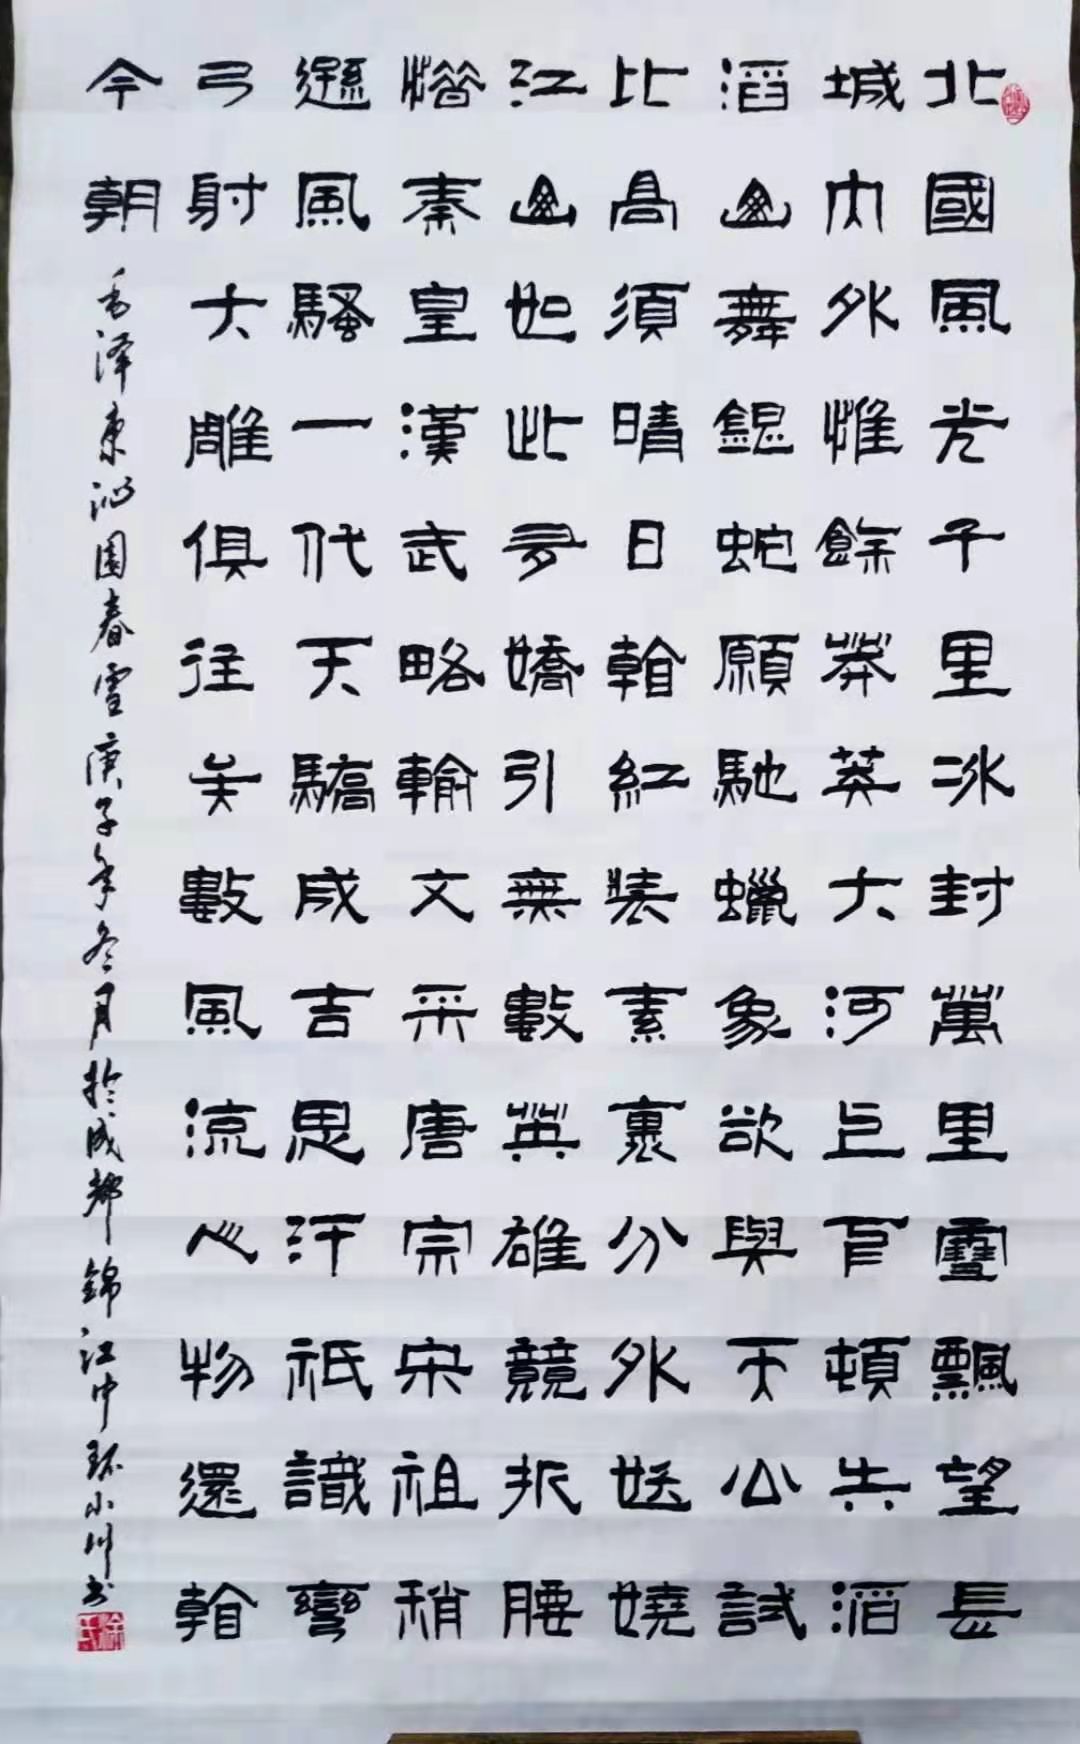 北國風光千里冰封萬里雪飄望長
城内外惟餘莽莽大河上下頓失滔
滔山舞銀蛇願馳蠟象欲與天公試
比高須晴日看紅裝素裹分外妖嬈
江山如此多嬌引無數英雄競折腰
惜秦皇漢武略輸文采唐宗宋祖稍
遜風騷一代天驕成吉思汗祇識彎
弓射大雕俱往矣數風流人物還看
今朝
毛泽東沁園春雪庚子年冬月於成都錦江中环小川书